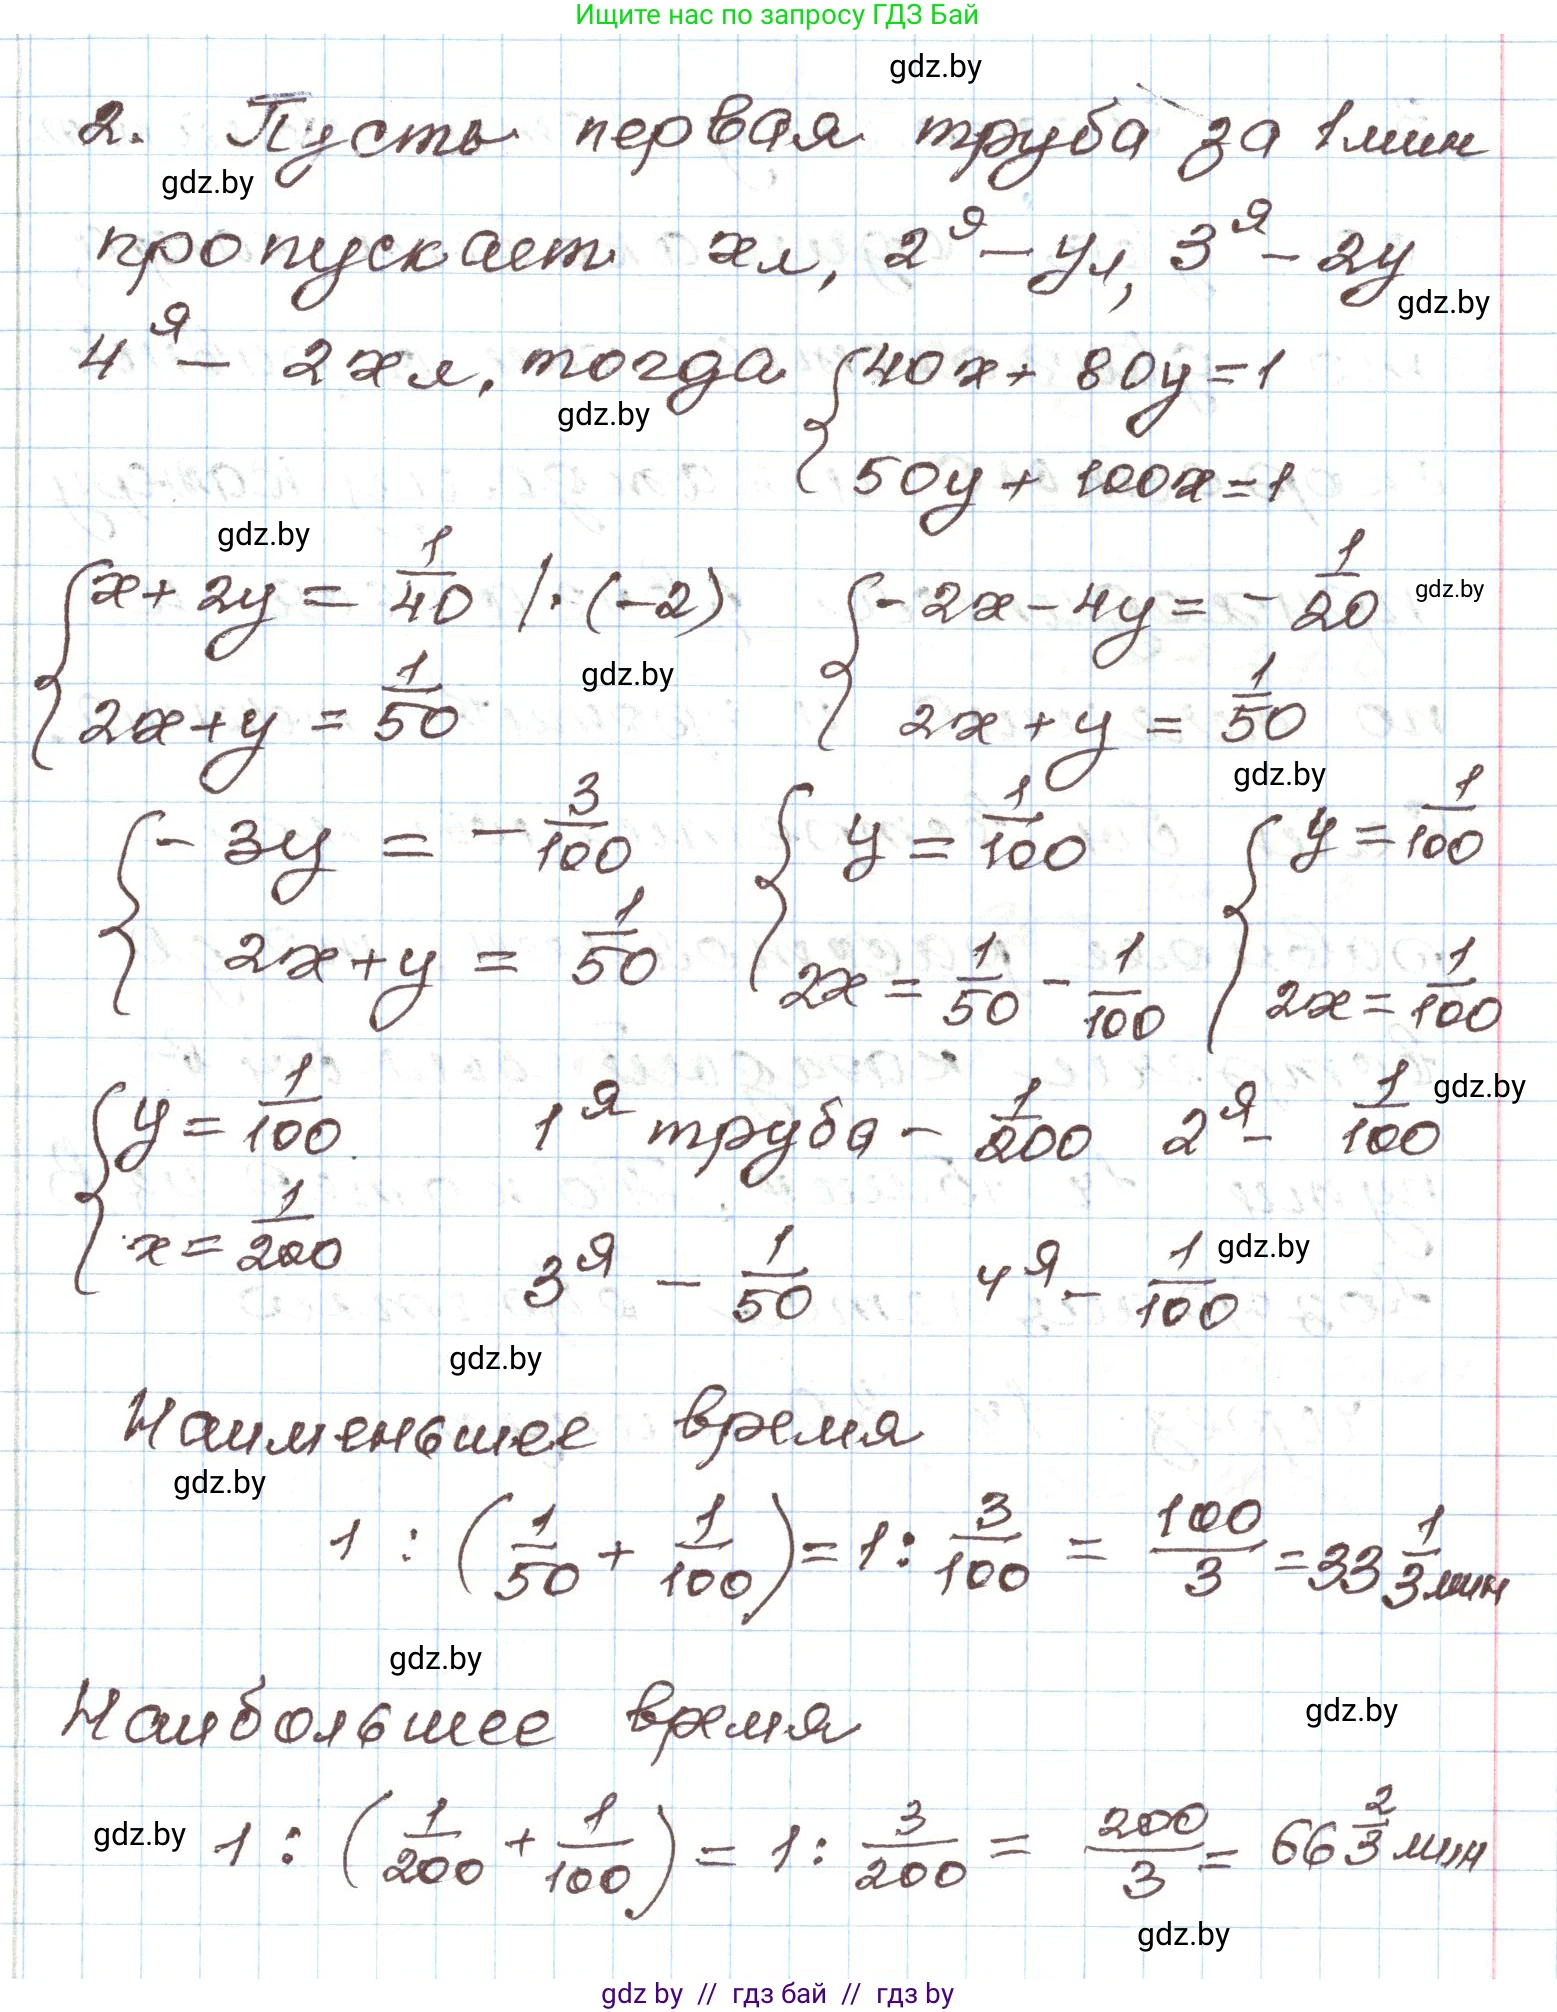 Ищите нас по запросу ГДЗ Бай
gdz.by
2. Пусть первая труба за 1 мин
gdz.by
пропускает x л, 2я – y л, 3я – 2y
gdz.by
4я – 2x л, тогда { 40x + 80y = 1
gdz.by
50y + 100x = 1
gdz.by
{ x + 2y = 1/40 | · (–2) { – 2x – 4y = – 1/20
gdz.by
gdz.by
2x + y = 1/50 2x + y = 1/50
gdz.by
{ – 3y = – 3/100 { y = 1/100 { y = 1/100
2x + y = 1/50 2x = 1/50 – 1/100 2x = 1/100
gdz.by
{ y = 1/100 1я труба – 1/200 2я – 1/100
x = 1/200 3я – 1/50 4я – 1/100
gdz.by
gdz.by
Наименьшее время
gdz.by
1 : (1/50 + 1/100) = 1 : 3/100 = 100/3 = 33 1/3 мин
gdz.by
Наибольшее время
gdz.by
gdz.by
1 : (1/200 + 1/100) = 1 : 3/200 = 200/3 = 66 2/3 мин
gdz.by
gdz by // гдз бай // гдз by